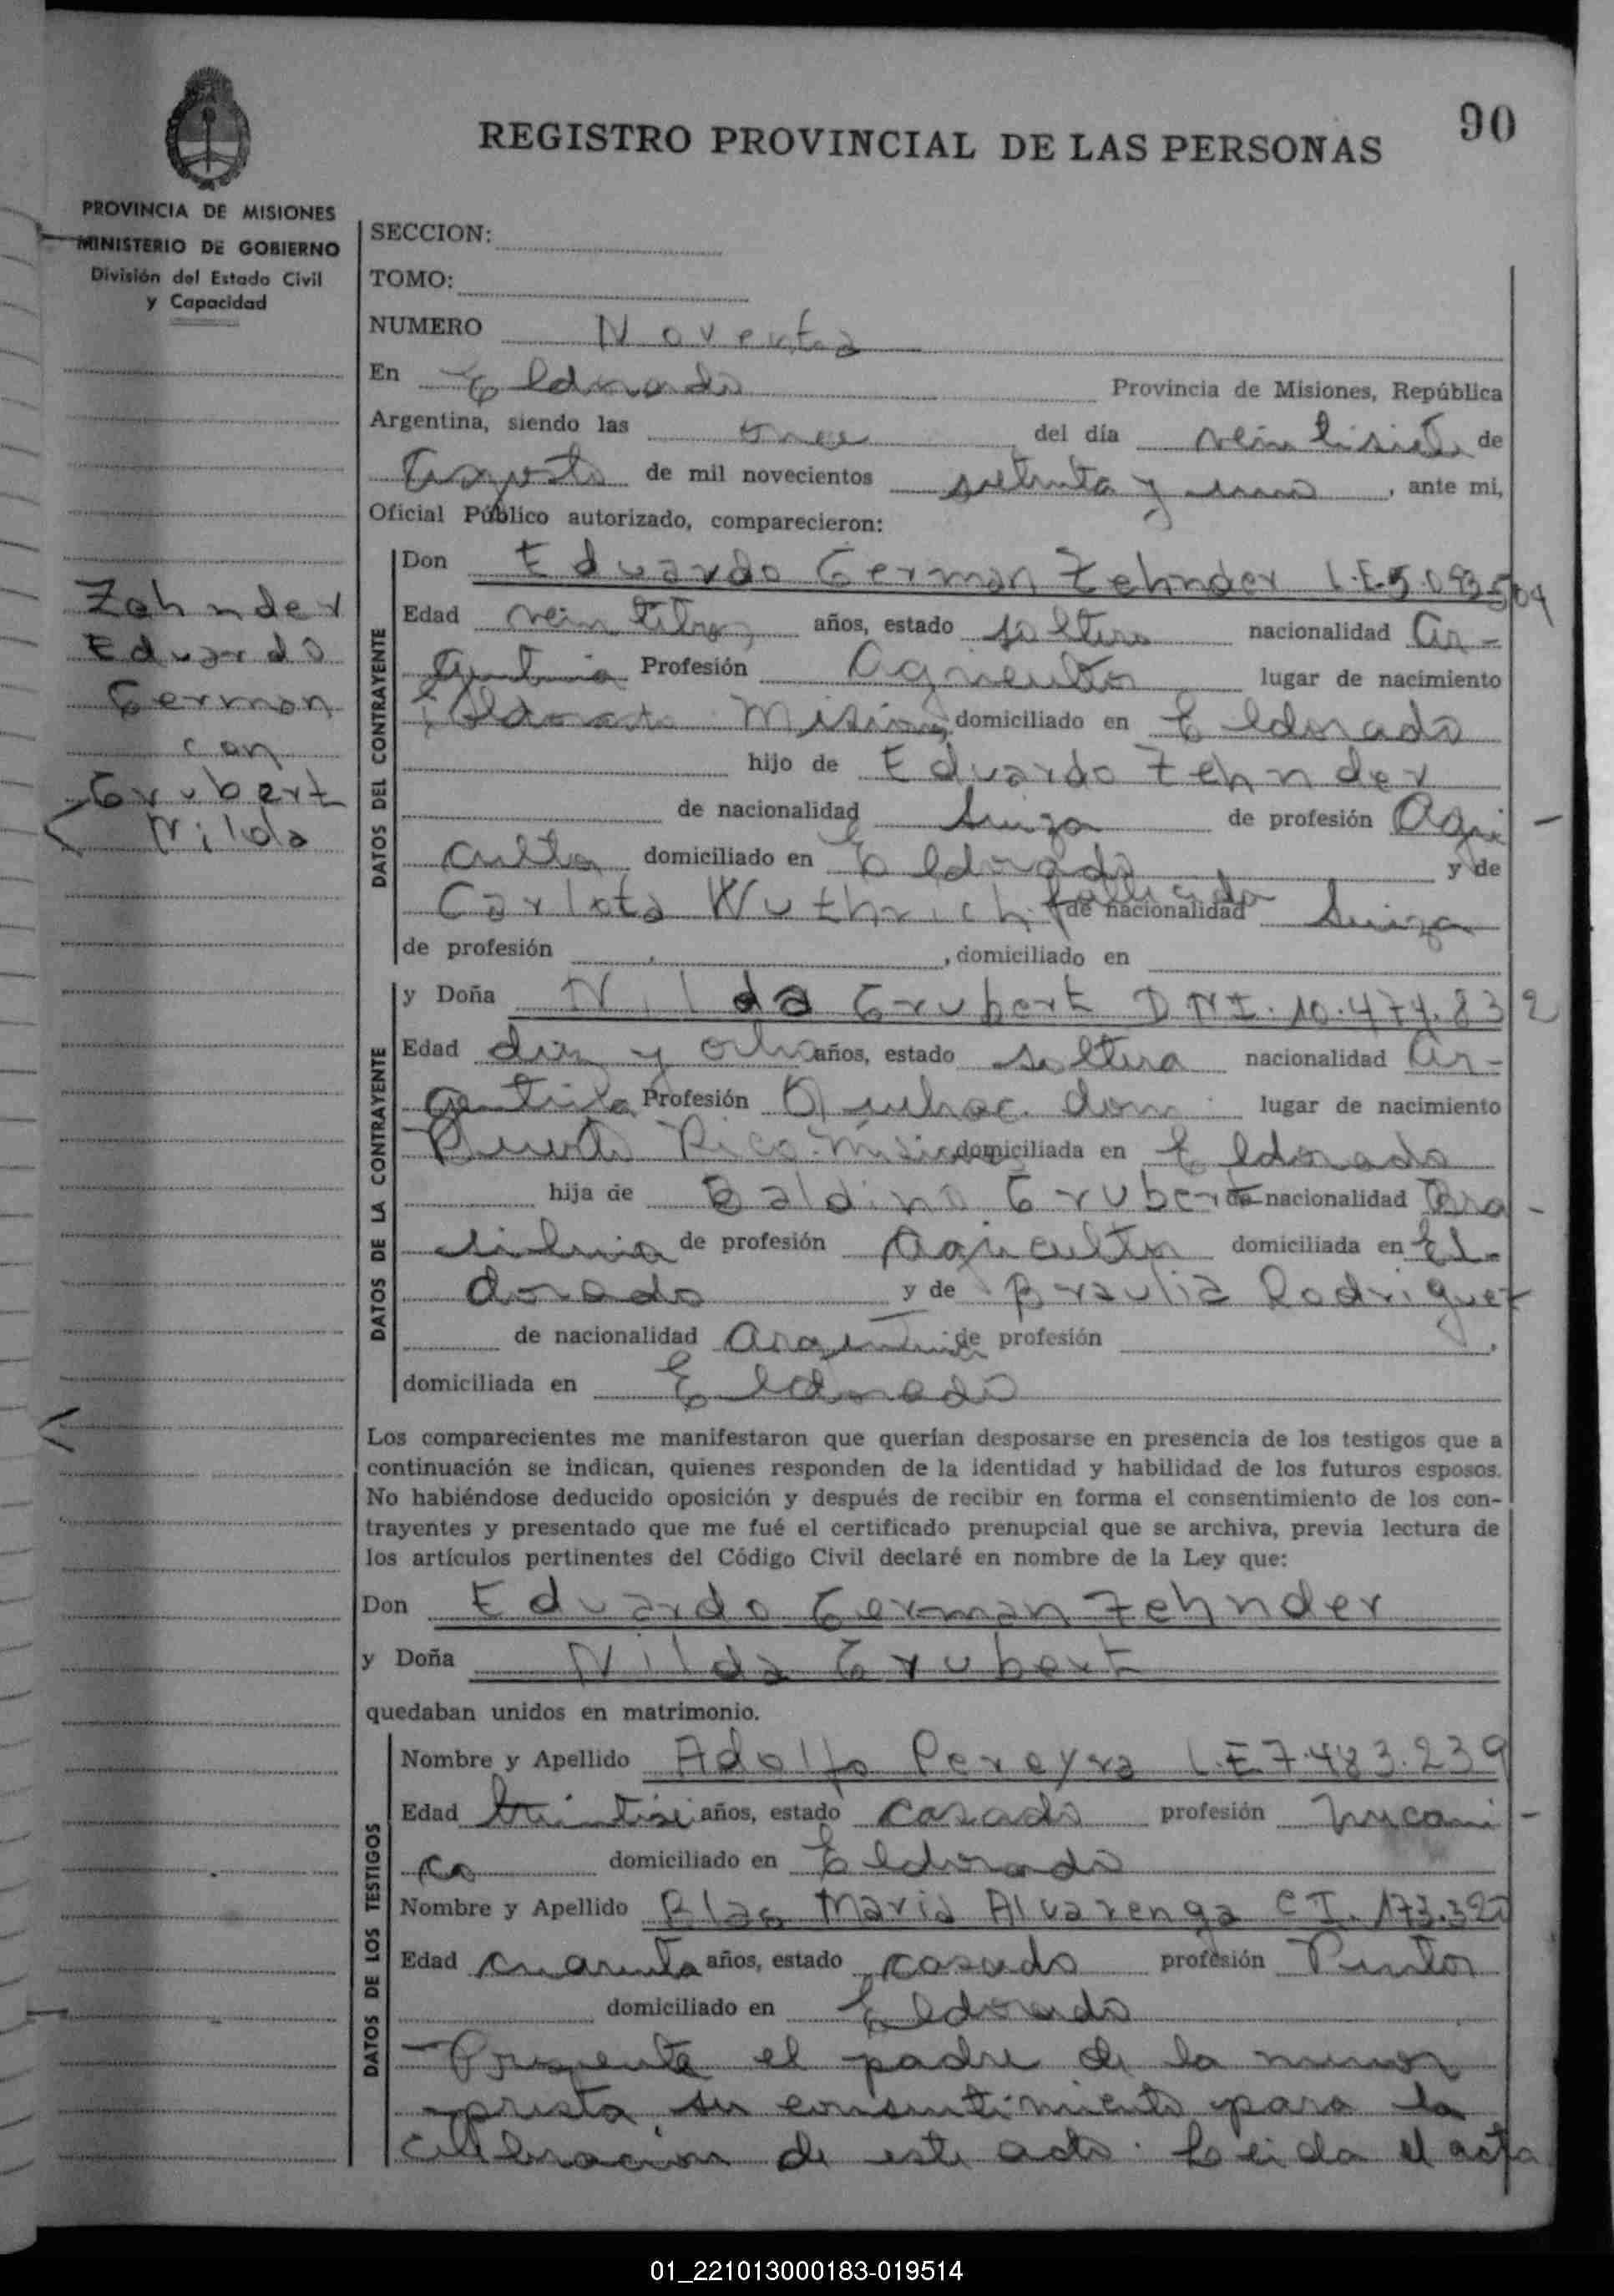 90
REGISTRO PROVINCIAL DE LAS PERSONAS
PROVINCIA DE MISIONES
MINISTERIO DE GOBIERNO
División del Estado Civil
y Capacidad
SECCION:
TOMO:
NUMERO Noventa
En Eldorado Provincia de Misiones, República
Argentina, siendo las once del día veintisiete de
Agosto de mil novecientos setenta y uno, ante mi,
Oficial Público autorizado, comparecieron:
Zehnder
Eduardo
German
con
Grubert
Nilda
DATOS DEL CONTRAYENTE
Don Eduardo German Zehnder L.E. 5.093.504
Edad veintitres años, estado soltero nacionalidad Ar-
gentina Profesión Agricultor lugar de nacimiento
Eldorado Misiones domiciliado en Eldorado
hijo de Eduardo Zehnder
de nacionalidad Suiza de profesión Agri-
cultor domiciliado en Eldorado y de
Carlota Wuthrich fallecida de nacionalidad Suiza
de profesión , domiciliado en
DATOS DE LA CONTRAYENTE
y Doña Nilda Grubert D.N.I. 10.474.832
Edad diez y ocho años, estado soltera nacionalidad Ar-
gentina Profesión Quehac. dom. lugar de nacimiento
Puerto Rico-Misiones domiciliada en Eldorado
hija de Baldino Grubert de nacionalidad Bra-
silenia de profesión Agricultor domiciliada en El-
dorado y de Braulia Rodriguez
de nacionalidad Argentina de profesión ,
domiciliada en Eldorado
Los comparecientes me manifestaron que querían desposarse en presencia de los testigos que a
continuación se indican, quienes responden de la identidad y habilidad de los futuros esposos.
No habiéndose deducido oposición y después de recibir en forma el consentimiento de los con-
trayentes y presentado que me fué el certificado prenupcial que se archiva, previa lectura de
los artículos pertinentes del Código Civil declaré en nombre de la Ley que:
Don Eduardo German Zehnder
y Doña Nilda Grubert
quedaban unidos en matrimonio.
DATOS DE LOS TESTIGOS
Nombre y Apellido Adolfo Pereyra L.E 7.483.239
Edad años, estado casado profesión mecani-
co domiciliado en Eldorado
Nombre y Apellido Blas Maria Alvarenga C I. 173.320
Edad cuarenta años, estado casado profesión Pintor
domiciliado en Eldorado
- Presente el padre de la menor
presta su consentimiento para la
celebracion de este acto. Leida el acta
01_221013000183-019514